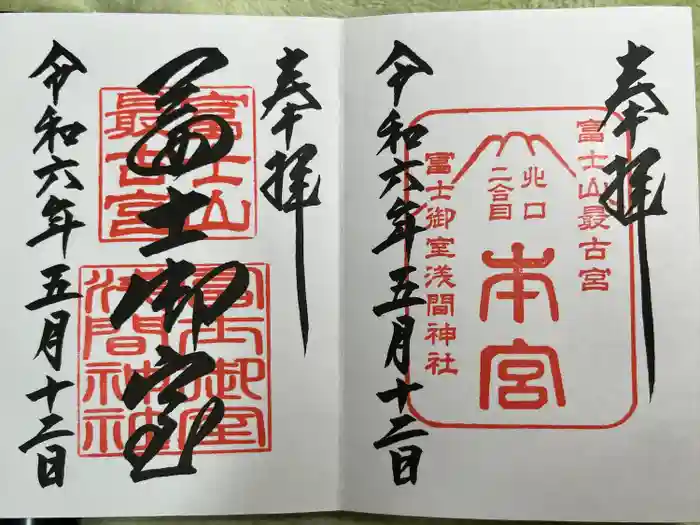 奉拝
富士山最古宮
北口
二合目
本宮
富士御室浅間神社
令和六年五月十二日
奉拝
富士山
最古宮
冨士御室
令和六年五月十二日